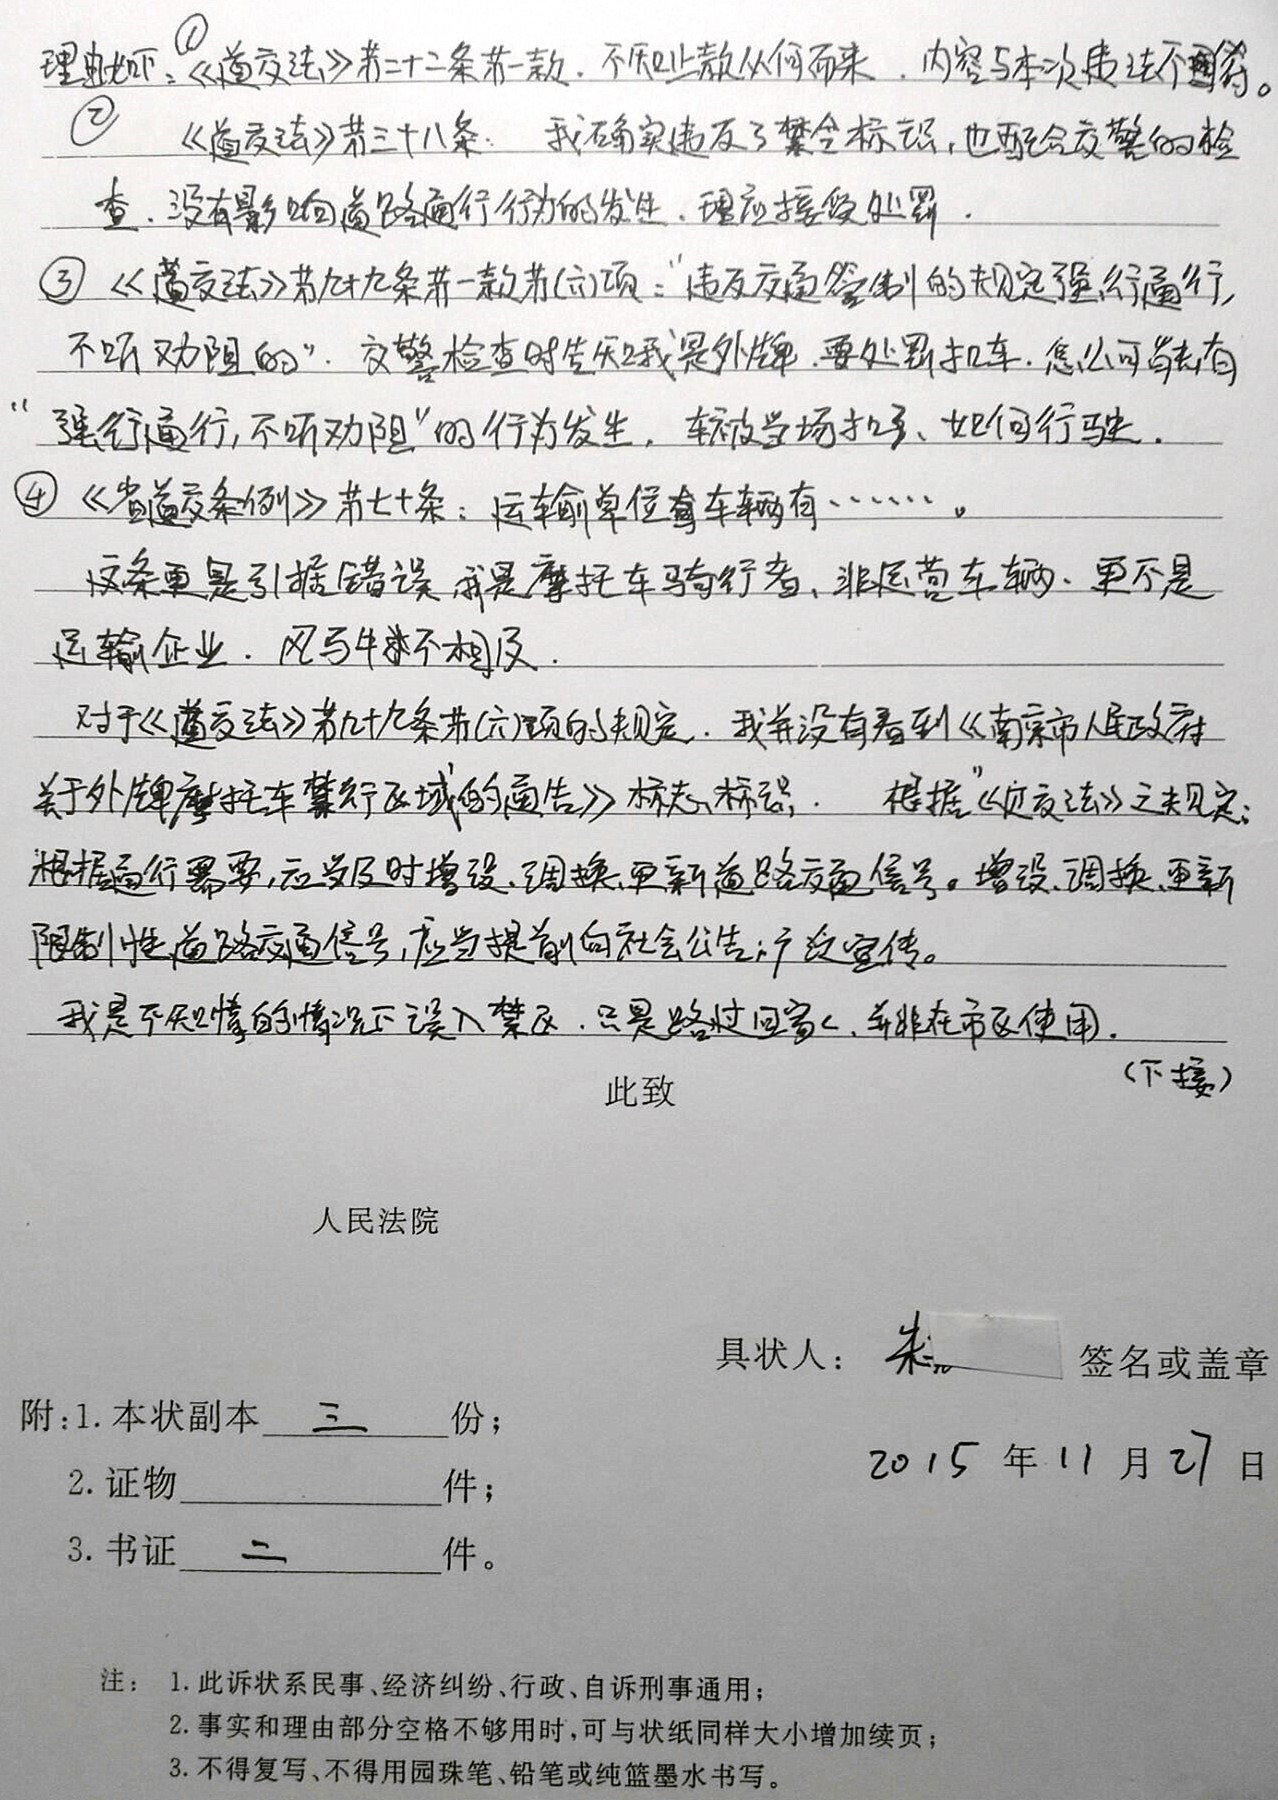 理由如下：①《道交法》第二十二条第一款．不知此款从何而来．内容与本次违法不相符。
② 《道交法》第三十八条： 我确实违反了禁令标识，也配合交警的检
查．没有影响道路通行行为的发生．理应接受处罚．
③《道交法》第九十九条第一款第(六)项："违反交通管制的规定强行通行，
不听劝阻的"．交警检查时告知我是外牌．要处罚扣车．怎么可能有
"强行通行，不听劝阻"的行为发生．车被当场扣了、如何行驶．
④《省道交条例》第七十条：运输单位车辆有……。
这条更是引据错误，我是摩托车骑行者、非运营车辆．更不是
运输企业．风马牛不相及．
对于《道交法》第九十九条第(六)项的规定．我并没有看到《南京市人民政府
关于外牌摩托车禁行区域的通告》标志、标识． 根据《道交法》之规定：
根据通行需要，应当及时增设、调换、更新道路交通信号。增设、调换、更新
限制性道路交通信号，应当提前向社会公告，广泛宣传。
我是不知情的情况下误入禁区．只是路过回家、并非在市区使用．
（下接）
此致
人民法院
具状人： 朱 签名或盖章
附：1. 本状副本 三 份；
2015 年 11 月 27 日
2. 证物 件；
3. 书证 二 件。
注： 1. 此诉状系民事、经济纠纷、行政、自诉刑事通用；
2. 事实和理由部分空格不够用时，可与状纸同样大小增加续页；
3. 不得复写、不得用园珠笔、铅笔或纯篮墨水书写。